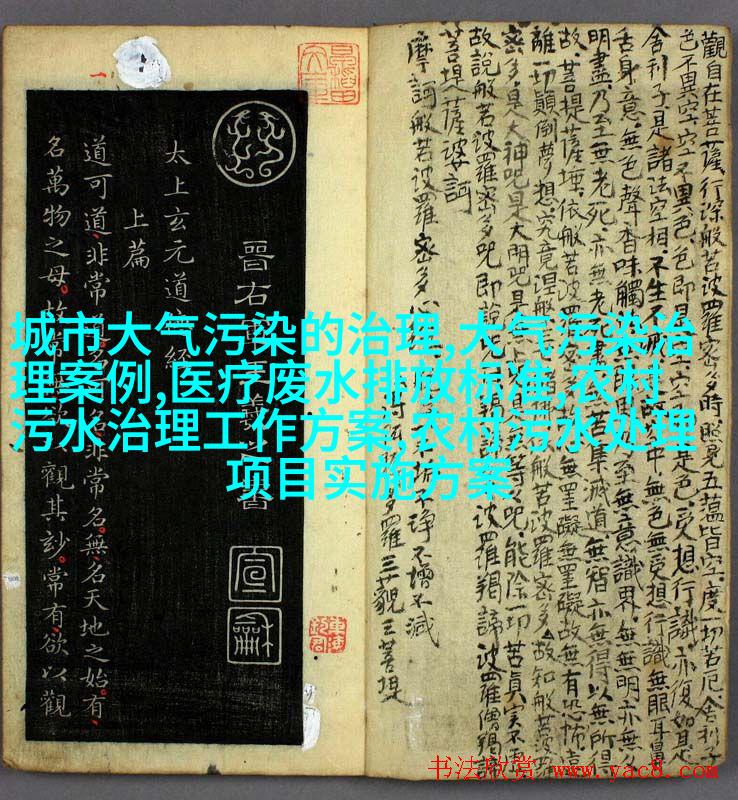 城市大气污染的治理,大气污染治
理案例,医疗废水排放标准,农村
污水治理工作方案,农村污水处理
项目实施方案
觀自在菩薩行深般若波羅蜜多時照見五蘊皆空度一切苦厄舍利子
色不異空空不異色色即是空是色受想行識亦復如是
舍利子是諸法空相不生不滅中無色無受想行識無眼耳鼻
舌身意無色聲香味觸至無意識界無無明亦無
明盡乃至無老死亦無老苦集滅道無智亦無得以無所得
故菩提薩埵依般若波羅無罣礙無罣礙故無有恐怖遠
離一切顛倒夢想究竟涅槃波羅密多故知般若波
密多是大神咒是大明咒是等咒能除一切苦真實不
故說般若波羅密多咒即說波羅揭諦波羅僧揭諦
菩提薩婆訶
摩訶般若波羅密多心
不垢不淨不增不減
多羅三藐三菩提
晉右軍書
太上玄元道經
上篇
道可道非常名非常名無名天地之始有
名萬物之母故常觀其妙常有欲以觀
宣
龢
书法欣赏 www.yac8.com